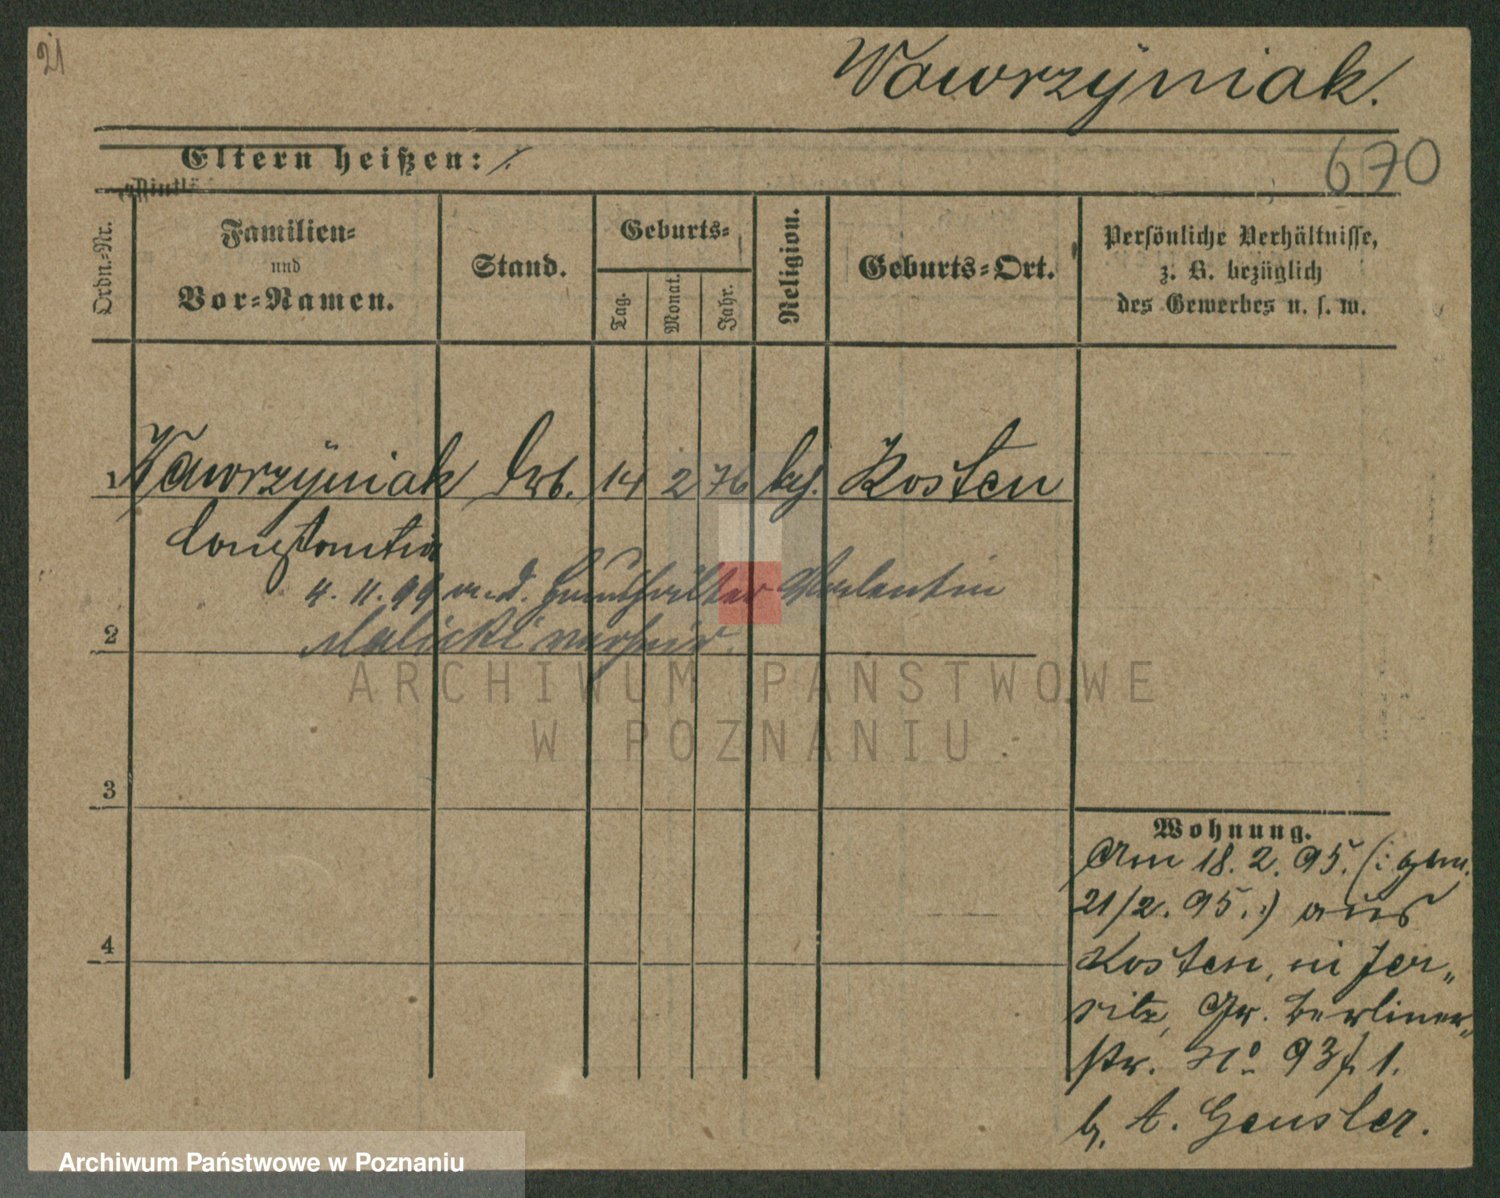 21
Wawrzyniak.
Eltern heißen: /.
670
Ordn.-Nr.
Familien-
und
Vor-Namen.
Stand.
Geburts-
Tag.
Monat.
Jahr.
Religion.
Geburts-Ort.
Persönliche Verhältnisse,
z. B. bezüglich
des Gewerbes u. s. w.
1 Wawrzyniak 14 2 76 kath. Kosten
Constantia
4. 11. 99 m. d. Haushälter Valentin
2 Malicki verheir.
3
4
Wohnung.
Am 18. 2. 95. (: gem.
21/2. 95. :) aus
Kosten, in Jer„
sitz, Gr. Berliner„
str. No 93 f. 1.
b. A. Gensler.
ARCHIWUM PAŃSTWOWE
W POZNANIU
Archiwum Państwowe w Poznaniu